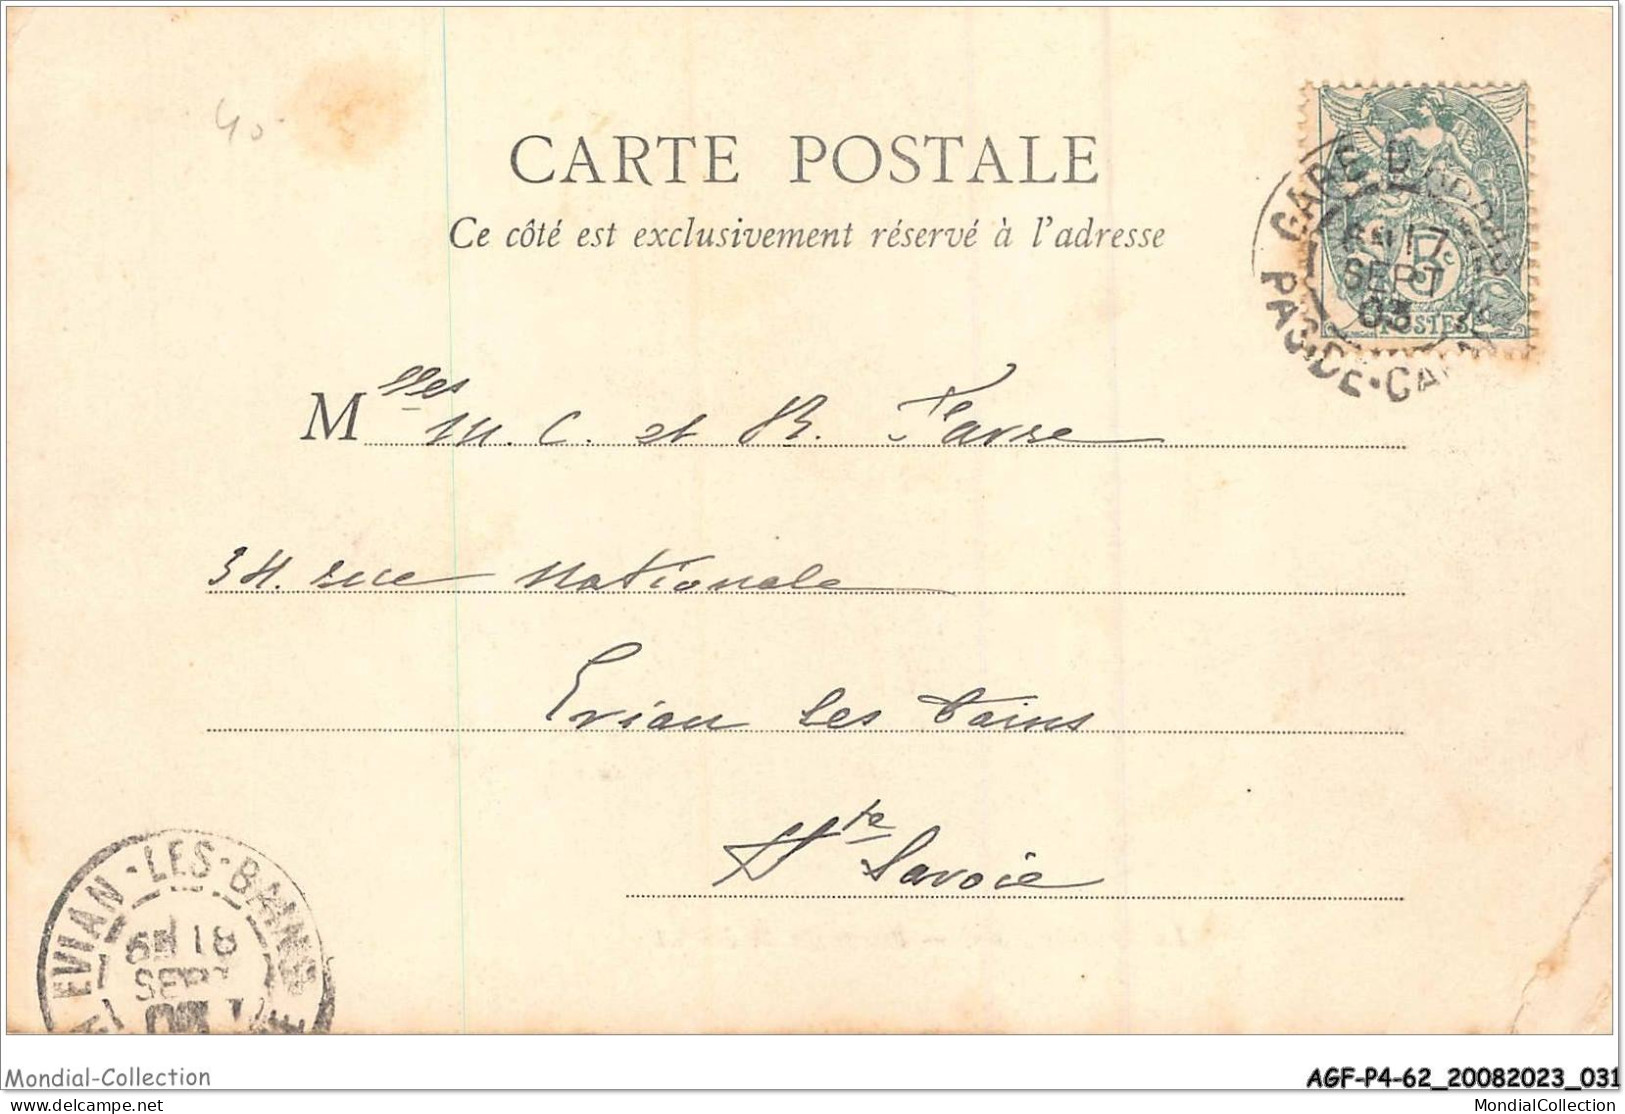 40
CARTE POSTALE
Ce côté est exclusivement réservé à l'adresse
GARE D'
17
SEPT
03
PAS-DE-CA
5c
POSTES
Mlles M. C. et R. Favre
34. rue Nationale
Evian les bains
Hte Savoie
EVIAN-LES-BAINS
18
SEPT
03
Mondial-Collection
AGF-P4-62_20082023_031
www.delcampe.net
MondialCollection